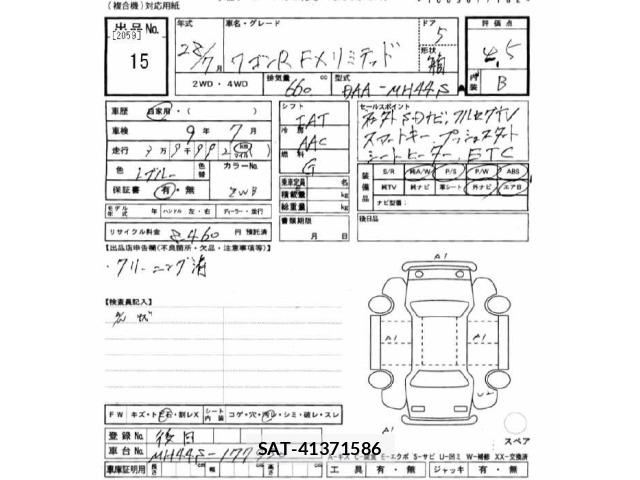 (複合機)対応用紙
出品No. 年式 車名・グレード ドア 評価点
[2059] 28/7月 ワゴンR FXリミテッド 5 4.5
15 形状 箱
2WD・4WD 排気量 660 cc 型式 DAA-MH44S 内装 B
車歴 自家用・( ) シフト IAT セールスポイント
車検 9年 7月 冷房 AAC
走行 km マイル スマートキー、プッシュスタート
色 ブルー 色替 カラーNo. 燃料 G シートヒーター、ETC
保証書 有・無 ZWB 乗車定員 名
積載量 kg 装備品 S/R 純A/W P/S P/W ABS
総重量 kg 純TV 純ナビ 革シート 外ナビ エアB
モデル年式 年 ハンドル 左・右 ディーラー・並行 ナビ型番:
書類期限 月 日 後日品
リサイクル料金 8,460 円 預託済
【出品店申告欄(不良箇所・欠品・注意事項等)】
・クリーニング済
【検査員記入】
A1
A1 A1
U2
A1
FW キズ・ト石・割レX シート内装 コゲ・穴・汚レ・シミ・破レ・スレ
スペア
登録No. 後日
車台No. MH44S-177
SAT-41371586
A-キズ E-エクボ S-サビ U-凹ミ W-補修 XX-交換済
車庫証明用 長さ cm 幅 cm 高さ 工具 有・無 ジャッキ 有・無